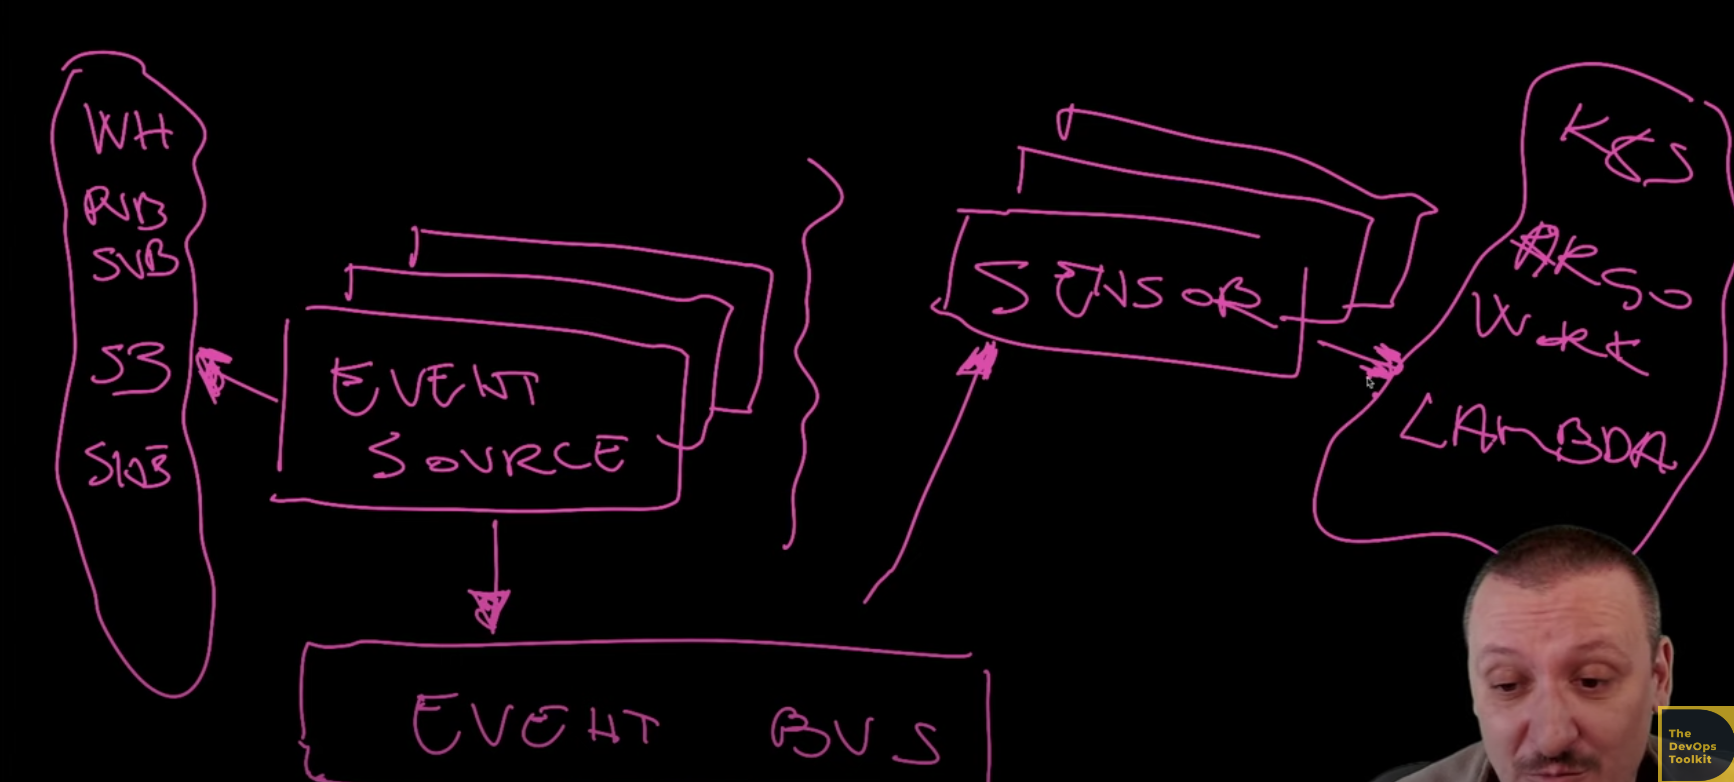 WH
PUB
SUB
S3
EVENT
SOURCE
EVENT BUS
SENSOR
K8S
ARGO
WORK
LAMBDA
The
DevOps
Toolkit